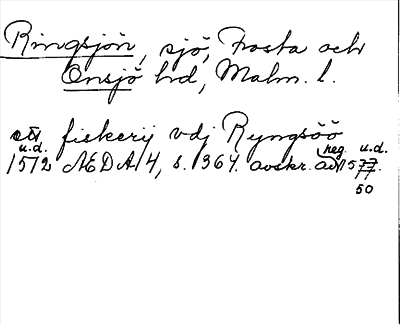 Ringsjön, sjö, Frosta och
Onsjö hd, Malm. l.
ett fiskerij vdj Ryngsöö
u.d. reg. u.d.
1572 ÆDA 4, s. 364. avskr. av 1577.
50